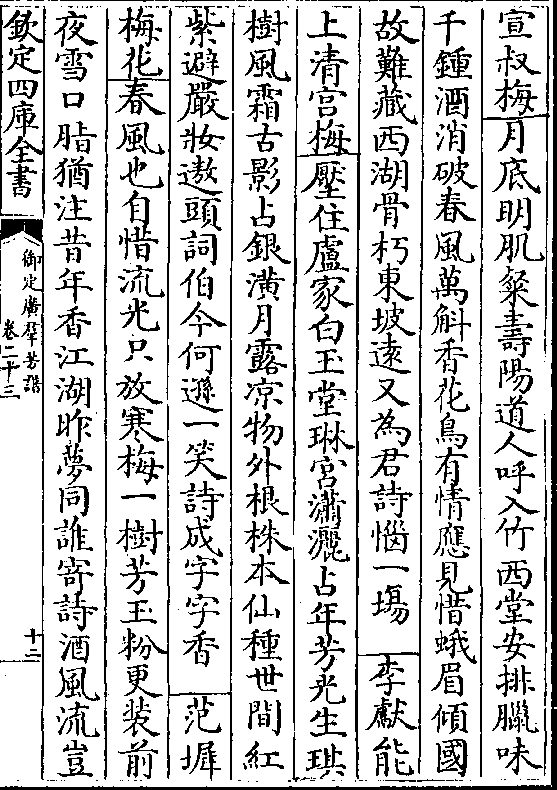 宣叔梅月底明肌粲壽陽道人呼入竹西堂安排臘味
千鍾酒消破春風萬斛香花鳥有情應見惜蛾眉傾國
故難藏西湖骨朽東坡遠又為君詩惱一場李獻能
上清宫梅壓住盧家白玉堂琳宫瀟灑占年芳光生琪
樹風霜古影占銀潢月露凉物外根株本仙種世間紅
紫避嚴妝遨頭詞伯今何遜一笑詩成字字香范墀
梅花春風也自惜流光只放寒梅一樹芳玉粉更装前
夜雪口脂猶注昔年香江湖昨夢同誰寄詩酒風流豈
欽定四庫全書
御定廣羣芳譜
卷二十三
十二